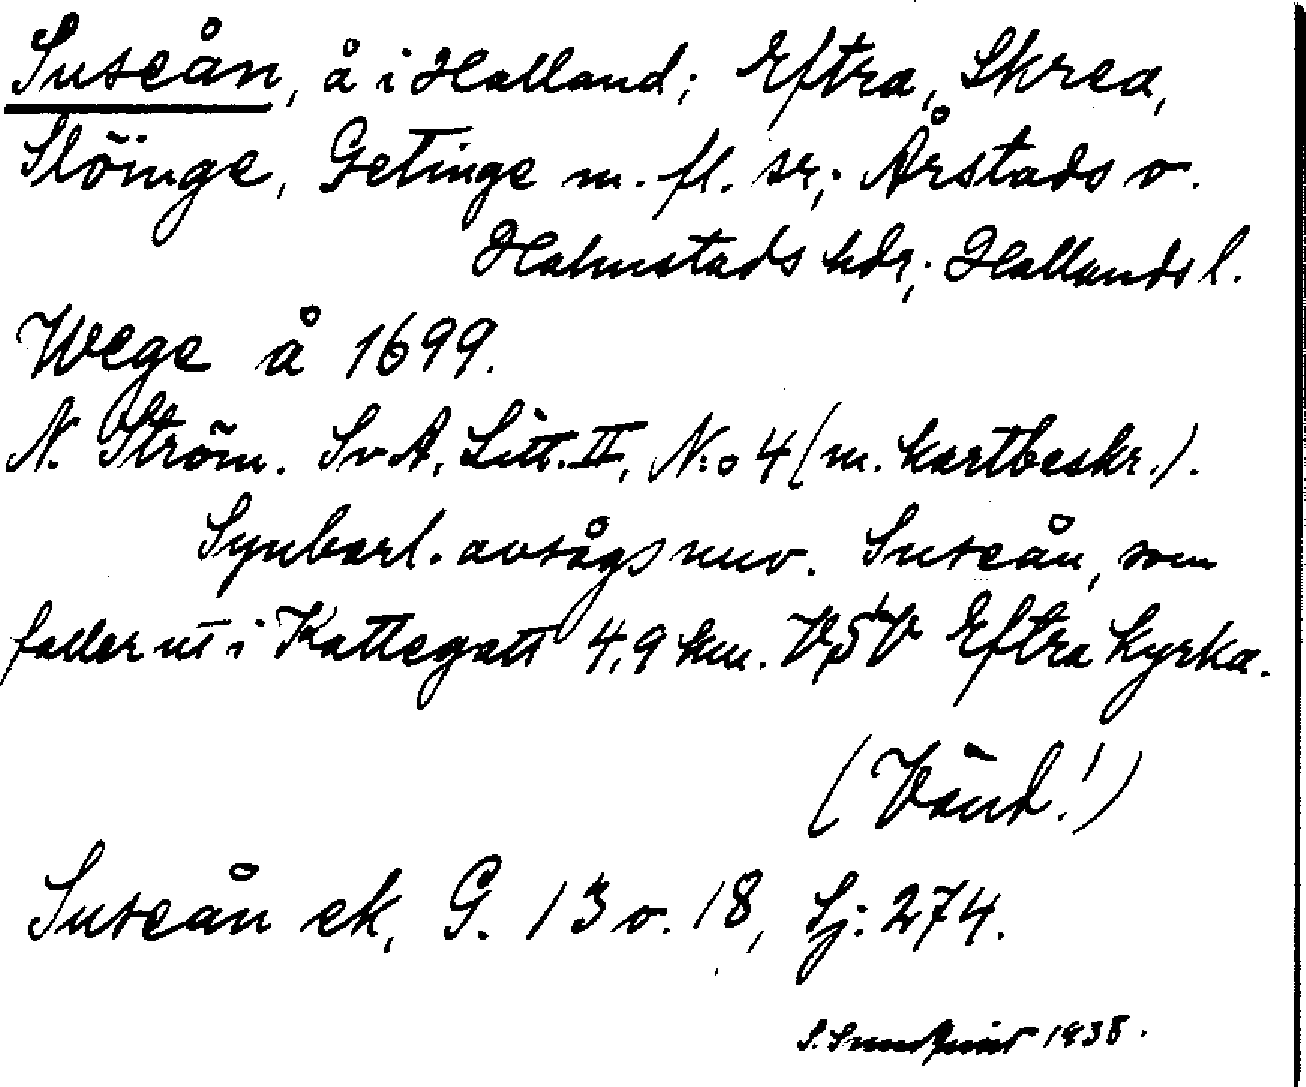 Suseån, å i Halland; Eftra, Skrea,
Slöinge, Getinge m. fl. sr; Årstads o.
Halmstads hdr; Hallands l.
Wege å 1699.
N. Ström. SvA, Litt. II, N:o 4 (m. kartbeskr.).
Synbarl. avsågs nuv. Suseån, som
faller ut i Kattegatt 4,9 km. V5°V Eftra kyrka.
(Vänd!)
Suseån ek, G. 13 o. 18, Sj: 274.
1938.